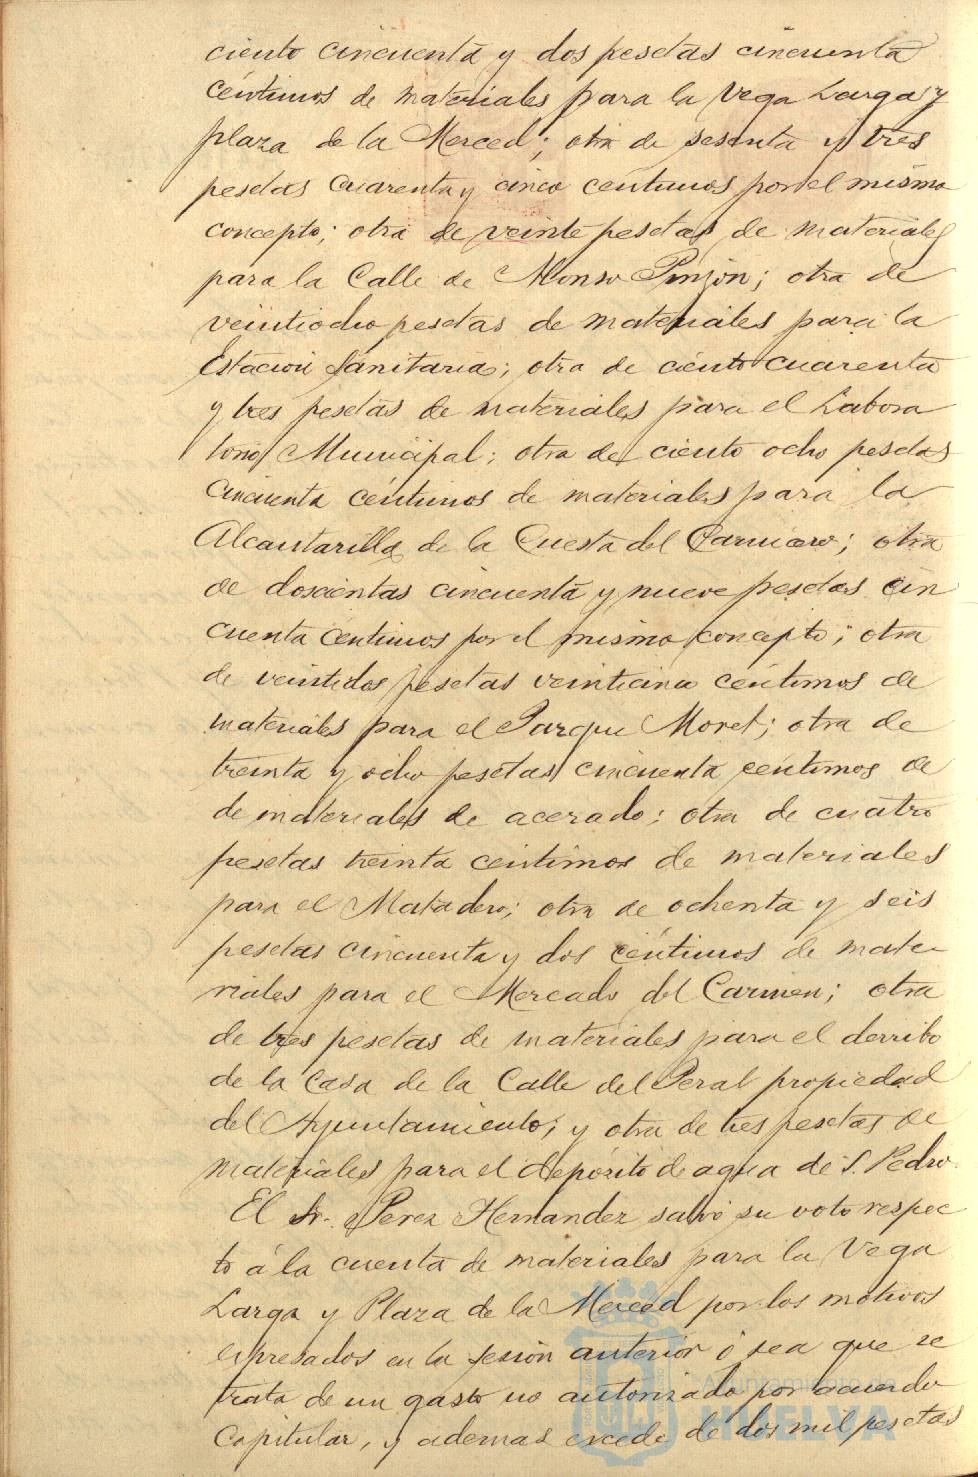 ciento cincuenta y dos pesetas cincuenta
céntimos de materiales para la Vega Larga y
plaza de la Merced; otra de sesenta y tres
pesetas cuarenta y cinco centimos por el mismo
concepto; otra de veinte pesetas de materiales
para la Calle de Alonso Pinzón; otra de
veintiocho pesetas de materiales para la
Estacion Sanitaria; otra de ciento cuarenta
y tres pesetas de materiales para el Labora
torio Municipal; otra de ciento ocho pesetas
cincuenta céntimos de materiales para la
Alcantarilla de la Cuesta del Carnicero; otra
de doscientas cincuenta y nueve pesetas cin
cuenta céntimos por el mismo concepto; otra
de veintidos pesetas veinticinco céntimos de
materiales para el Parque Moret; otra de
treinta y ocho pesetas cincuenta centimos de
de materiales de acerado; otra de cuatro
pesetas treinta centimos de materiales
para el Matadero; otra de ochenta y seis
pesetas cincuenta y dos céntimos de mate-
riales para el Mercado del Carmen; otra
de tres pesetas de materiales para el derribo
de la Casa de la Calle del Peral propiedad
del Ayuntamiento; y otra de tres pesetas de
materiales para el depósito de agua de S. Pedro.
El Sr. Perez Hernandez salvó su voto respec
to á la cuenta de materiales para la Vega
Larga y Plaza de la Merced por los motivos
espresados en la sesion anterior ó sea que se
trata de un gasto no autorizado por acuerdo
Capitular, y ademas excede de dos mil pesetas
Ayuntamiento de
HUELVA